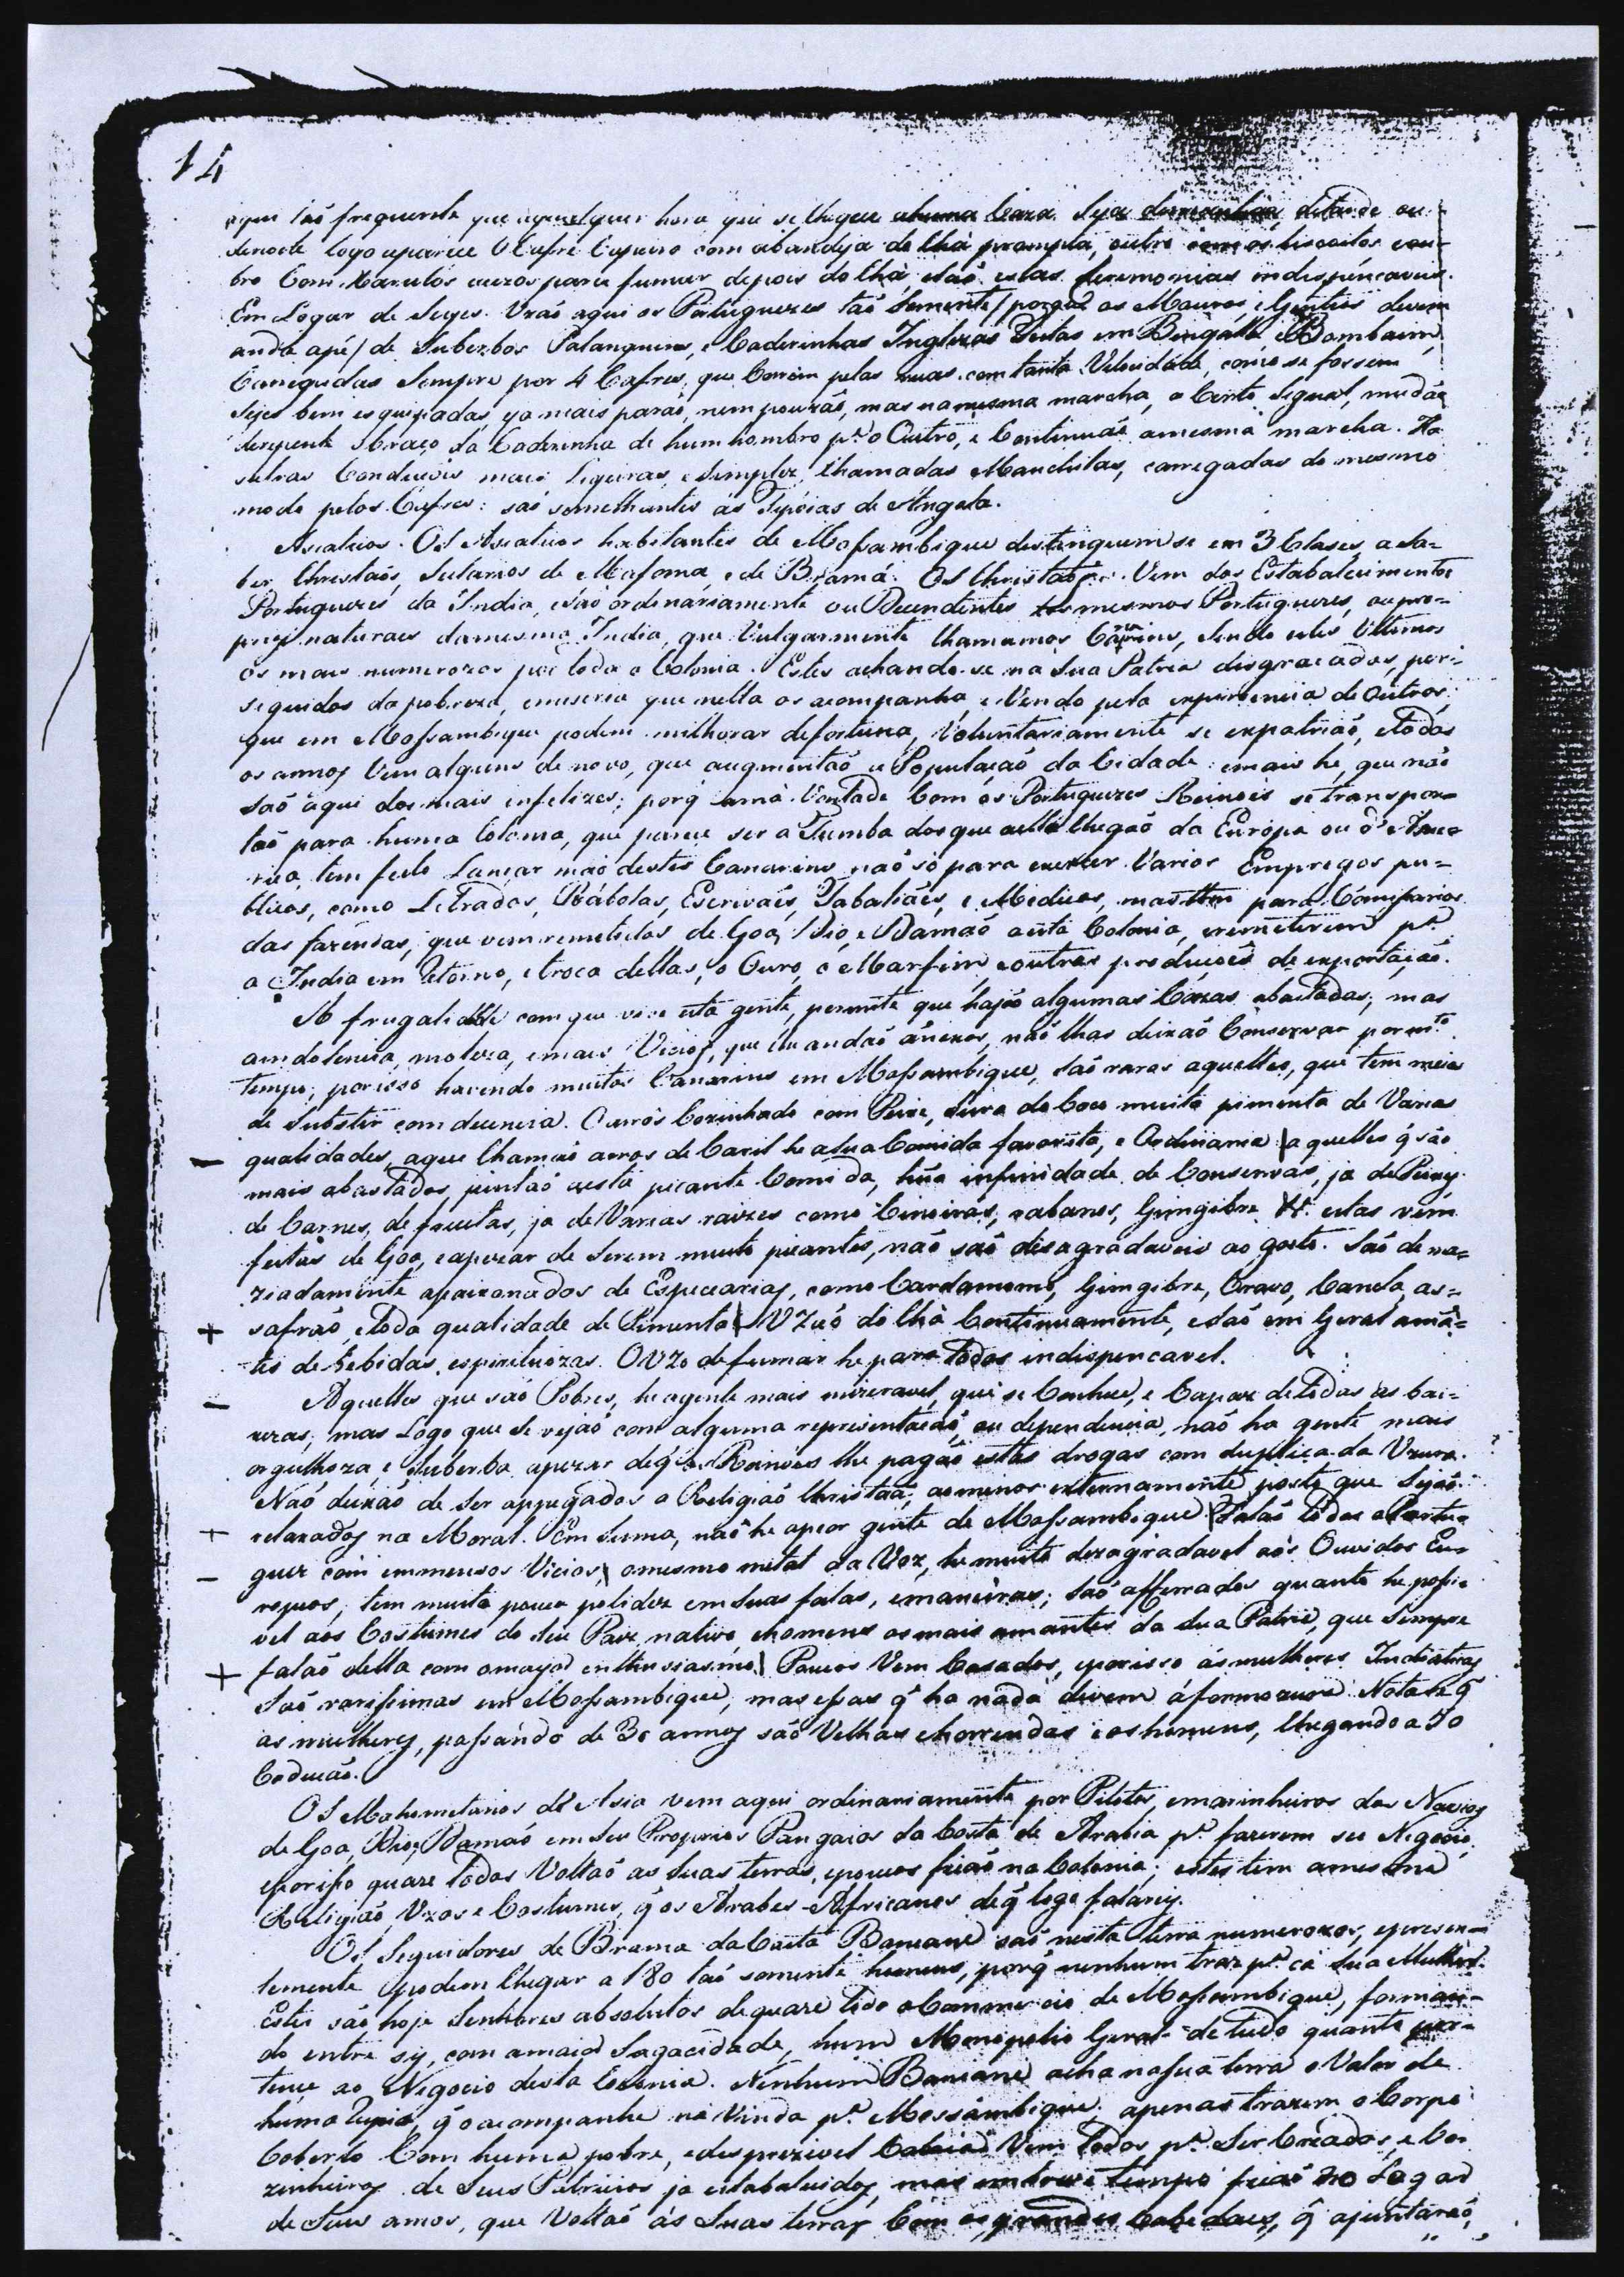 14
aqui taõ frequente que aqualquer hora que se chegue ahuma Caza Seja demanhãa, detarde ou
denoite logo aparece O Cafre Copeiro com abandeja do Chà prompta, outro com os biscoitos e ou-
tro Com Xarutos acezos para fumar depois do Chà, e saõ estas seremonias indispençaveis.
Em Logar de Seges. Uzaõ aqui os Portuguezes taõ Somente / porque os Mouros, e Gentios devem
andar apé / de Suberbos Palanquens, e Cadeirinhas Inglezas Feitas em Bengalla e Bombaim,
Carregadas Sempre por 4 Cafres, que Correm pelas ruas com tanta Velocidade, como se fossem
Sejes bem esquipadas, ja mais paraõ, nem pouzaõ, mas na mesma marcha, a Certo Signal, mudaõ
derepente o braço da Cadrinha de hum hombro p.ª o Outro, e Continuaõ amesma marcha. Ha
outras Conduçois mais Ligeiras, e Simplez, Chamadas Manchilas, carregadas do mesmo
modo pelos Cafres: saõ semelhantes ás Tipóias de Angola.
Asiaticos. OS Asiaticos habitantes de Mossambique destinguem se em 3 Clases, a Sa-
ber, Christaõs, Sectarios de Mafoma, e de Bramá. OS Christaõs Vem dos Estabalecimentos
Portuguezes da India, e saõ ordenariamente ou Decendentes dos mesmos Portuguezes, ou pro-
prios naturaes damesma India, que Vulgarmente Chamamos Canarins, Sendo estes Ultimos
os mais numerozos por toda a Colonia. Estes achando-se na Sua Patria disgraçados, per-
siguidos da pobreza, e miseria que nella os acompanha, e Vendo pela experiencia de Outros,
que em Mossambique podem milhorar defortuna, Voluntariamente se expatriaõ, e todos
os annos Vem alguns de novo, que augmentaõ a Populaçaõ da Cidade: e mais he, que naõ
saõ aqui dos mais infelizes; porq̃ amà Vontade Com os Portuguezes Reinois se transpor-
taõ para huma Colonia, que parece ser a Tumba dos que aella Chegaõ da Europa ou d'Ame-
rica, tem feito Lançar maõ destes Canarins naõ só para exercer Varios Empregos pu-
blicos, como Letrados, Rábolas, Escrivaẽs, Tabaliaẽs, e Medicos, mas tbem para Comissarios
das fazendas, que vem remetidas de Goa, Dio, e Damaõ aesta Colonia, e remeterem p.ª
a India em retorno, e troca dellas, o Ouro, o Marfim e outras produçoẽs de exportaçaõ.
A frugalidade com que vive esta gente, permite que hajaõ algumas Cazas abastadas, mas
a indolencia, moleza, e mais Vicios, que lhe andaõ ánexos, naõ lhas deixaõ Conservar por m.to
tempo; porisso havendo muitos Canarins em Mossambique, Saõ raros aquelles, que tem meios
de Subsstir com decencia. O arros Cozinhado com Peixe, Sura de Coco muita pimenta de Varias
qualidades, aque Chamaõ arros de Caril he a Sua Comida favorita, e Ordinaria | aquelles q̃ saõ
mais abastados juntaõ aesta picante Comida, huã infinidade de Conservas, ja de Peixes
de Carnes, de fructas, ja de Varias raizes como Cinoiras, rabanos, Gimgibre &.ª estas vem
feitas de Goa, e apezar de Serem muito picantes, naõ saõ disagradaveis ao gosto. Saõ dema-
ziadamente apaixonados de Especearias, como Cardamomo, Gimgibre, Cravo, Canela, as-
safraõ, e toda qualidade de Pimenta | UZaõ do Chà Continuamente, e Saõ em Geral aman-
tes de bebidas espirituozas. O Uzo defumar he para todos indispencavel.
Aquelles que saõ Pobres, he agente mais mizeravel, que se Conhece, e Capaz de todas as bai-
xezas; mas Logo que se vejaõ com alguma representaçaõ, ou dependencia, naõ ha gente mais
orgulhoza, e Suberba apezar de q̃ os Reinois lhe pagaõ estas drogas com duplicada Uzura.
Naõ deixaõ de ser appegados a Religiaõ Christaã, aomenos externamente posto que Sejaõ
relaxados na Moral. Em Suma, naõ he apior gente de Mossambique | Falaõ todos o Portu-
guez com immensos Vicios, | omesmo metal da Voz, he muito dezagradavel aôs Ouvidos Eu-
ropeos, tem muito pouca polidez em Suas falas, emaneiras; Saõ afferrados quanto he possi-
vel aos Costumes do Seu Paiz nativo, e homens os mais amantes da Sua Patria, que Sempre
falaõ della com omayor enthusiasmo | Poucos Vem Casados, eporisso ás mulheres Indiaticas
Saõ rarissimas em Mossambique, mas essas q̃ ha nada devem áformozura. Nota se q̃
as mulheres, passando de 30 annos saõ Velhas e horrendas e os homens, Chegando a 50
Caducaõ.
OS Mahumetanos, de Asia vem aqui ordinariamente por Pilotos, emarinheiros dos Navios
de Goa, Dio, Damaõ, em Seus Proprios Pangaios da Costa de Arabia p.ª fazerem seu Negocio,
eporisso quaze todos Voltaõ as Suas terras, epoucos ficaõ na Colonia; estes tem amesma
Religiaõ, Uzos e Costumes, q̃ os Arabes-Africanos de q̃ logo falarey.
OS Seguidores de Brama da Casta Baneane saõ nesta terra numerozos, epresen-
temente podem Chegar a 180 taõ somente homens, porq̃ nenhum traz p.ª cá Sua Mulher.
Estes saõ hoje Senhores absolutos de quaze todo o Commercio de Mossambique, forman-
do entre sy, com amaior Sagacidade, hum Monopolio Geral de tudo quanto per-
tence ao Negocio desta Colonia. Nenhum Baneane acha na sua terra o Valor de
huma Rupia, q̃ o acompanhe na Vinda p.ª Mossambique: apenas trazem o Corpo
Coberto Com huma pobre, e desprezivel Cabaia. Vem todos p.ª Ser Creados, e Co-
zinheiros de Seus Patricios ja estabalecidos, mas em breve tempo ficaõ no Logar
de Seus amos, que Voltaõ ás Suas terras Com os grandes Cabedaes, q̃ ajuntaraõ,